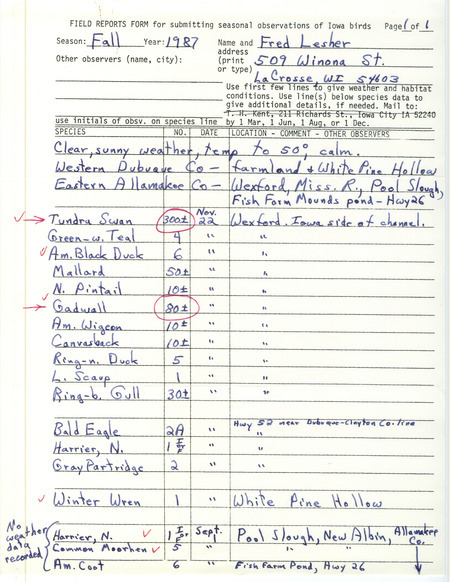 FIELD REPORTS FORM for submitting seasonal observations of Iowa birds Page 1 of 1
Season: Fall Year: 1987 Name and Fred Lesher
address
Other observers (name, city): (print 509 Winona St.
or type) LaCrosse, WI 54603
Use first few lines to give weather and habitat
conditions. Use line(s) below species data to
give additional details, if needed. Mail to:
T. H. Kent, 211 Richards St., Iowa City IA 52240
use initials of obsv. on species line by 1 Mar, 1 Jun, 1 Aug, or 1 Dec.
SPECIES NO. DATE LOCATION - COMMENT - OTHER OBSERVERS
Clear, sunny weather, temp to 50°, calm.
Western Dubuque Co - farmland & White Pine Hollow
Eastern Allamakee Co - Wexford, Miss. R., Pool Slough,
Fish Farm Mounds pond - Hwy 26
Tundra Swan 300± Nov. 22 Wexford. Iowa side of channel.
Green-w. Teal 4 " "
Am. Black Duck 6 " "
Mallard 50± " "
N. Pintail 10± " "
Gadwall 80± " "
Am. Wigeon 10± " "
Canvasback 10± " "
Ring-n. Duck 5 " "
L. Scaup 1 " "
Ring-b. Gull 30± " "
Hwy 52 near Dubuque-Clayton Co. line
Bald Eagle 2A " "
Harrier, N. 1 I/F " "
Gray Partridge 2 " "
Winter Wren 1 " White Pine Hollow
No weather data recorded
Harrier, N. 1 I/F Sept. 1 Pool Slough, New Albin, Allamakee Co.
Common Moorhen 5 " "
Am. Coot 6 " Fish Farm Pond, Hwy 26